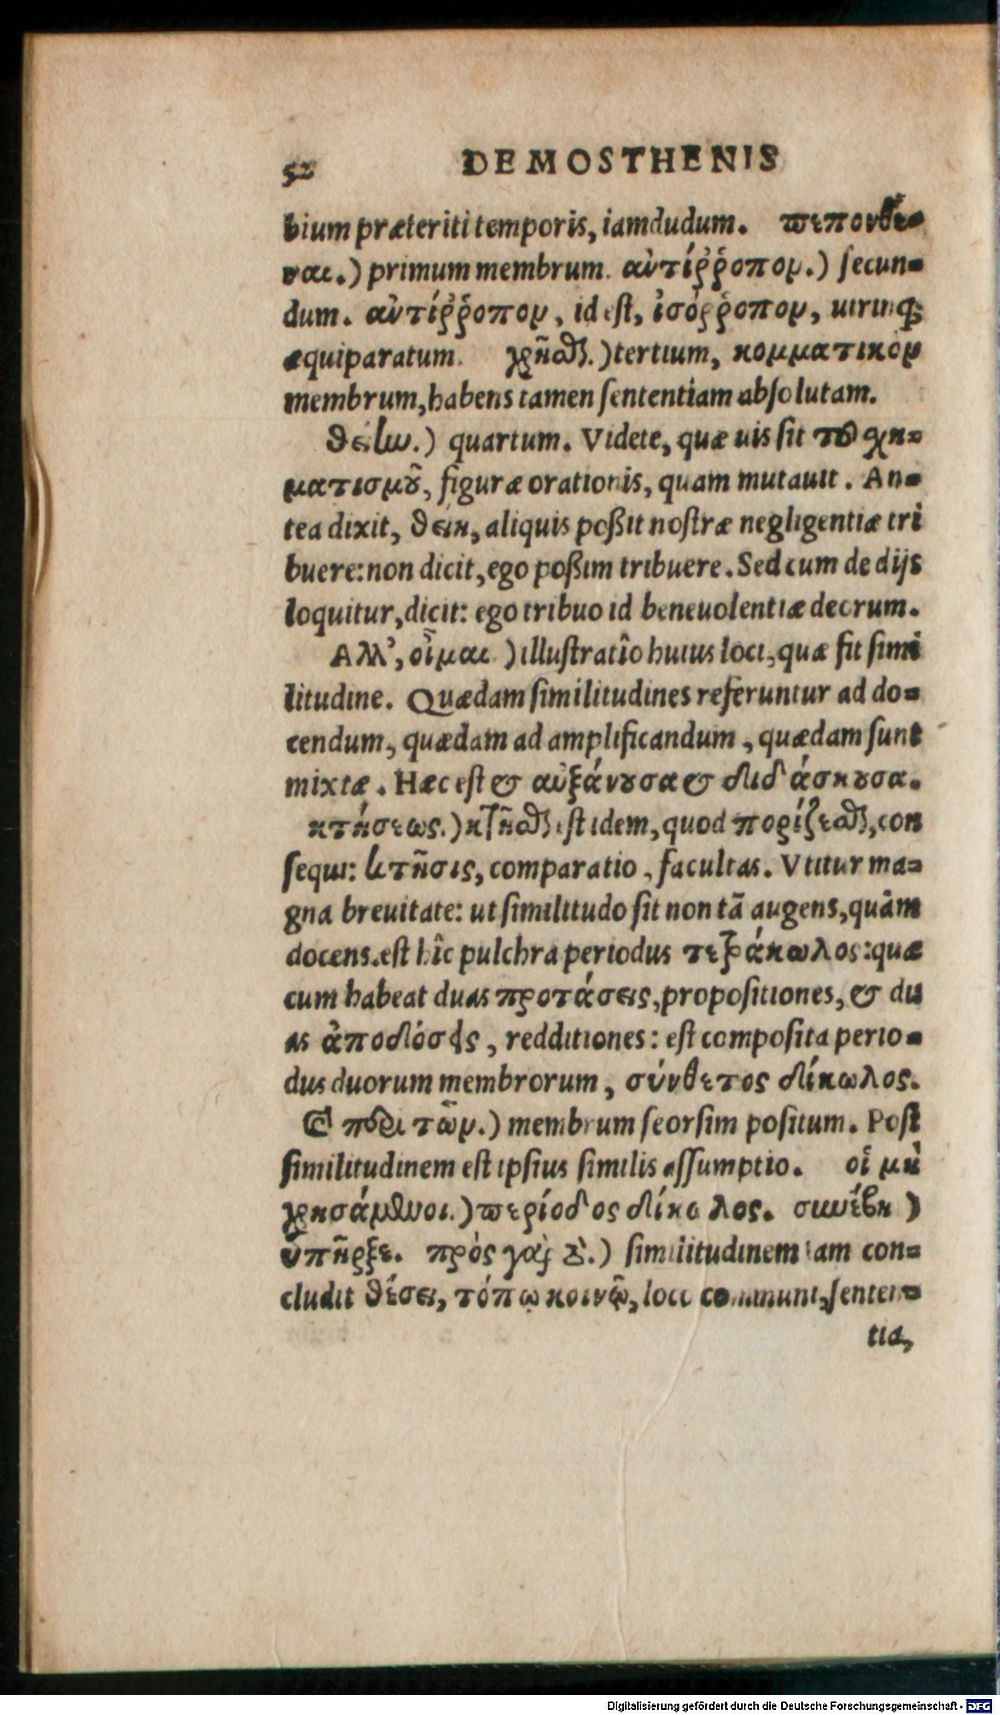 52 DEMOSTHENIS
bium præteriti temporis, iamdudum. πεπονθέ-
ναι.) primum membrum. ἀντίῤῥοπον.) secun-
dum. ἀντίῤῥοπον, id est, ἰσόῤῥοπον, utrinq;
æquiparatum. χρῆσθ.) tertium, κομματικὸν
membrum, habens tamen sententiam absolutam.
θείην.) quartum. Videte, quæ uis sit τοῦ χη-
ματισμοῦ, figuræ orationis, quam mutauit. An-
tea dixit, θείη, aliquis poßit nostræ negligentiæ tri
buere: non dicit, ego poßim tribuere. Sed cum de dijs
loquitur, dicit: ego tribuo id beneuolentiæ deorum.
Αλλ', οἶμαι.) illustratio huius loci, quæ fit simi
litudine. Quædam similitudines referuntur ad do-
cendum, quædam ad amplificandum, quædam sunt
mixtæ. Hæc est & αὐξάνουσα & διδάσκουσα.
κτήσεως.) κτῆσθαι est idem, quod πορίζεσθαι, con
sequi: κτῆσις, comparatio, facultas. Vtitur ma-
gna breuitate: ut similitudo sit non tã augens, quàm
docens. est hîc pulchra periodus τετράκωλος: quæ
cum habeat duas προτάσεις, propositiones, & du
as ἀποδόσεις, redditiones: est composita perio-
dus duorum membrorum, σύνθετος δίκωλος.
Καὶ περὶ τῶν.) membrum seorsim positum. Post
similitudinem est ipsius similis assumptio. οἱ μὴ
χρησάμενοι.) περίοδος δίκωλος. συνέβη)
ὑπῆρξε. πρὸς γὰρ τὸ.) similitudinem iam con-
cludit θέσει, τόπῳ κοινῷ, loco communi, senten-
tia,
Digitalisierung gefördert durch die Deutsche Forschungsgemeinschaft - DFG